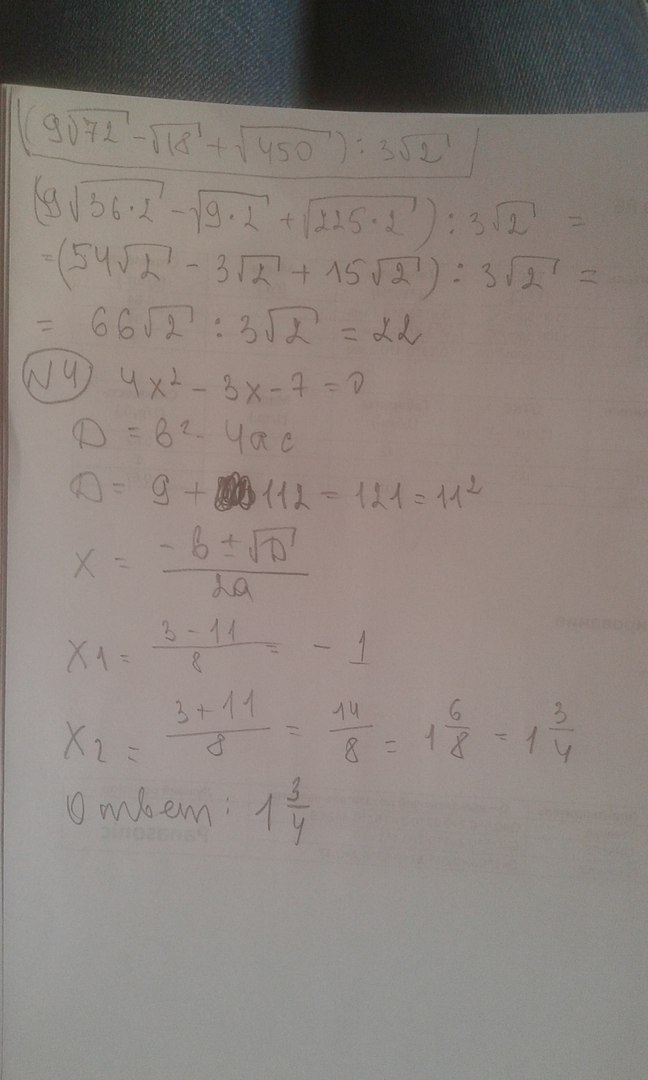 (9√72 - √18 + √450) : 3√2
(9√36·2 - √9·2 + √225·2) : 3√2 =
= (54√2 - 3√2 + 15√2) : 3√2 =
= 66√2 : 3√2 = 22
N4 4x² - 3x - 7 = 0
D = b² - 4ac
D = 9 + 112 = 121 = 11²
x = (-b ± √D)/2a
x1 = (3 - 11)/8 = -1
x2 = (3 + 11)/8 = 14/8 = 1 6/8 = 1 3/4
Ответ: 1 3/4